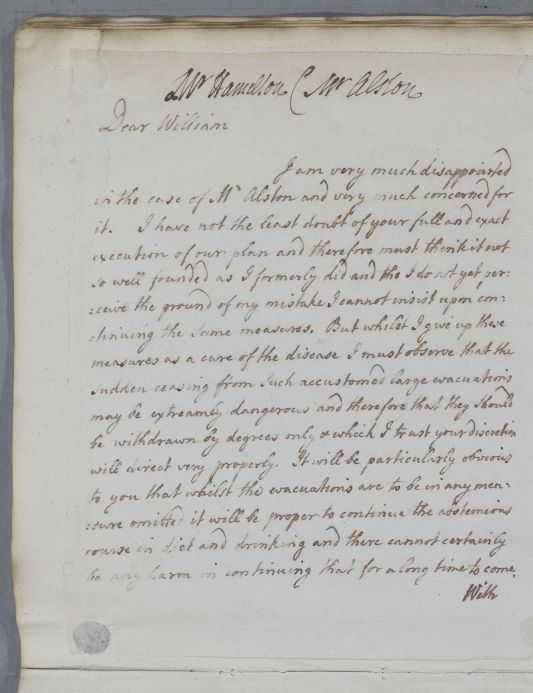 Mr Hamilton C Mr Alston
Dear William
I am very much disappointed
in the case of Mr Alston and very much concerned for
it. I have not the least doubt of your full and exact
execution of our plan and therefore must think it not
so well founded as I formerly did and tho I do not yet per:
:ceive the ground of my mistake I cannot insist upon con:
:tinuing the same measures. But whilst I give up these
measures as a cure of the disease I must observe that the
sudden ceasing from such accustomed large evacuations
may be extreamly dangerous and therefore that they should
be withdrawn by degrees only & which I trust your discretion
will direct very properly. It will be particularly obvious
to you that whilst the evacuations are to be in any mea:
:sure omitted it will be proper to continue the abstemious
course in diet and drinking and there cannot certainly
be any harm in continuing that for a long time to come.
With